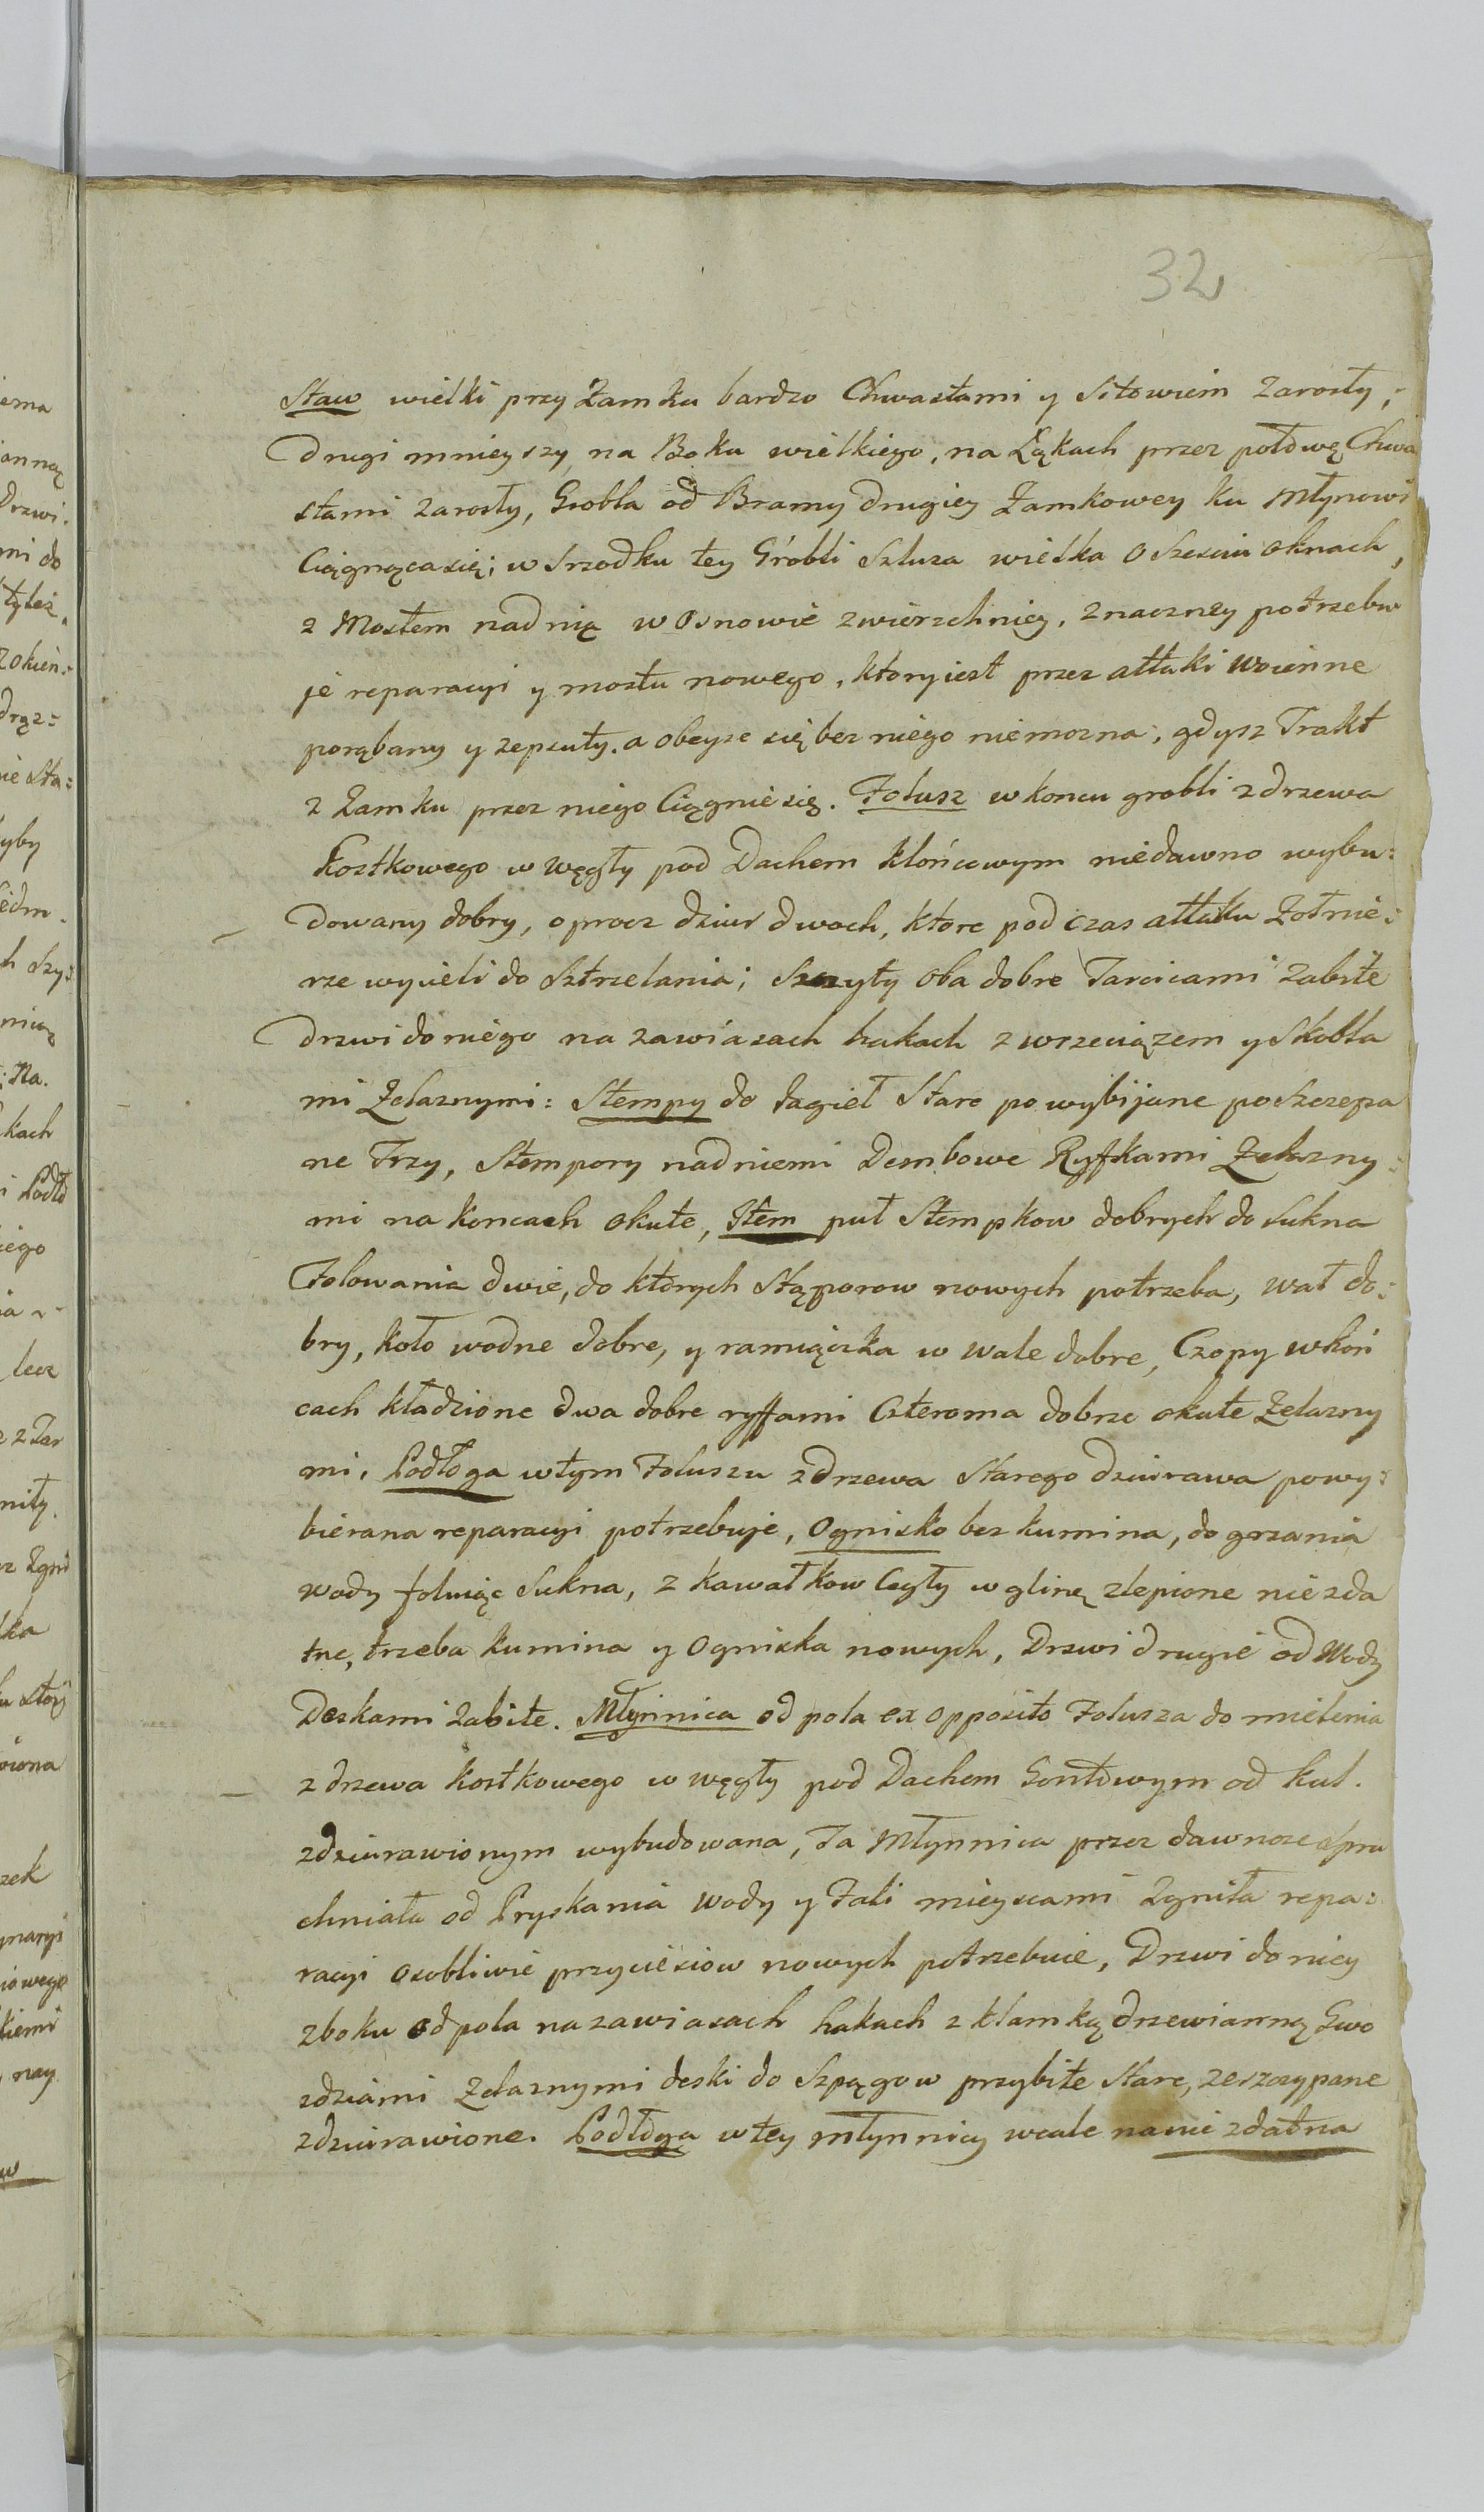 32
Staw wielki przy Zamku bardzo Chwastami y Sitowiem zarosły;
Drugi mnieyszy na Boku wielkiego, na Łąkach przez połowę Chwa
stami zarosły, Grobla od Bramy drugiey Zamkowey ku Młynowi
Ciągnąca się; w Srzodku tey Grobli Szluza wielka o Szesciu oknach,
z Mostem nad nią w Osnowie zwierzchniey, znaczney potrzebu
je reparacyi y mostu nowego, ktory iest przez attaki woienne
porąbany y zepsuty. a obeysc się bez niego niemozna, gdysz Trakt
z Zamku przez niego Ciągnie się. Folusz w koncu grobli z drzewa
Kostkowego w węgły pod Dachem kłońcowym niedawno wybu:
dowany dobry, oprocz dziur dwoch, ktore pod czas attaku Zołnie:
rze wycieli do Sztrzelania; Szczyty oba dobre Tarcicami zabite
drzwi do niego na zawiasach hakach z wrzeciązem y Skobla
mi Zelaznymi: Stempy do Jagieł Stare powybijane poszczepa
ne Trzy, Stempory nad niemi Dembowe Ryfkami Zelazny:
mi na koncach okute, Item put Stempkow dobrych do Sukna
Folowania dwie, do których Stąporow nowych potrzeba, wał do:
bry, koło wodne dobre, y ramiączka w wale dobre, Czopy w koń
cach kładzione dwa dobre ryffami Czteroma dobrze okute Zelazny
mi, Podłoga w tym Foluszu z drzewa Starego dziurawa powy:
bierana reparacyi potrzebuje, Ognisko bez kumina, do grzania
wody foluiąc Sukna, z kawałkow Cegły w glinę zlepione niezda
tne, trzeba kumina y Ogniska nowych, Drzwi drugie od Wody
Deskami zabite. Młynnica od pola ex opposito Folusza do mielenia
z drzewa kostkowego w węgły pod Dachem Gontowym od kul.
zdziurawionym wybudowana, Ta Młynnica przez dawnosc Spru
chniała od Pryskania wody y Fali mieyscami zgniła repa:
racyi osobliwie przyciesiow nowych potrzebuie, Drzwi do niey
z boku od pola na zawiasach hakach z klamką drzewianną Gwo
zdziami Zelaznymi deski do Szpągow przybite Stare, zeszczypane
zdziurawione. Podłoga w tey młynnicy wcale na nic zdatna